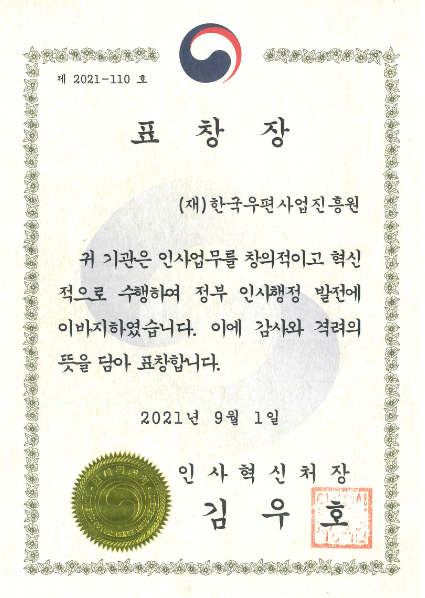 제 2021-110 호
표 창 장
(재)한국우편사업진흥원
귀 기관은 인사업무를 창의적이고 혁신
적으로 수행하여 정부 인사행정 발전에
이바지하였습니다. 이에 감사와 격려의
뜻을 담아 표창합니다.
2021년 9월 1일
인 사 혁 신 처 장
김 우 호